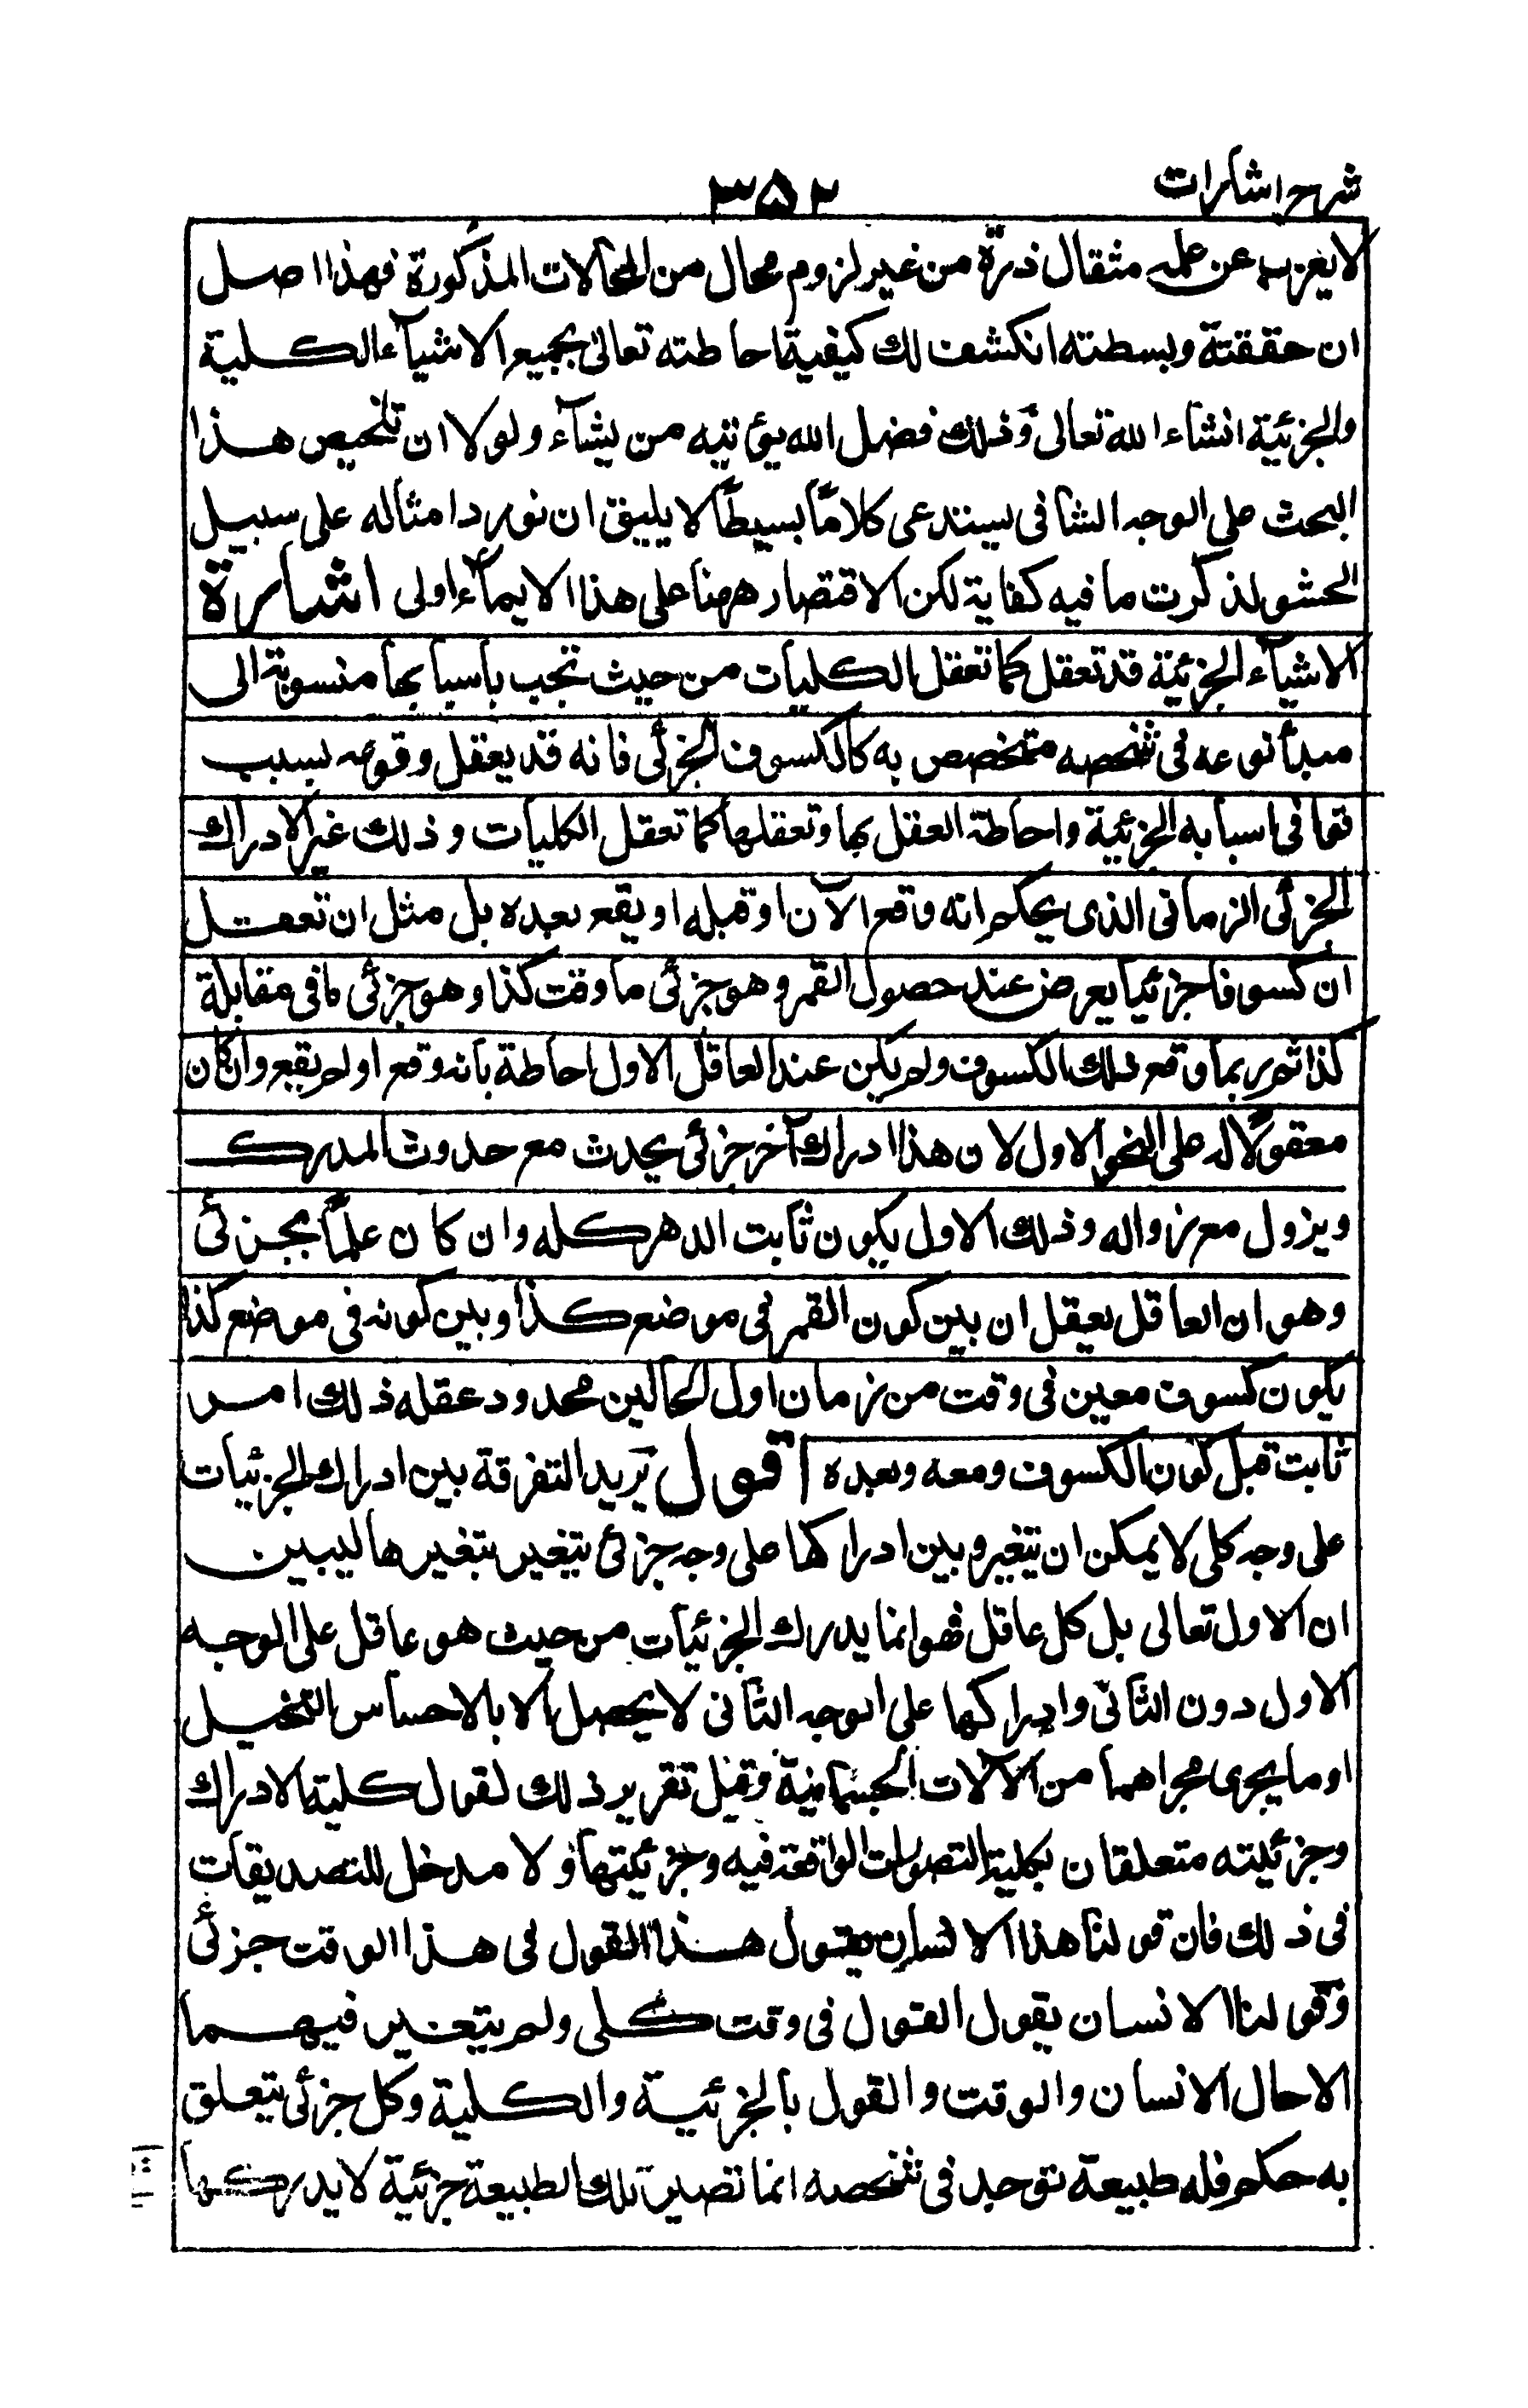 شرح اشارات
۳۵۲
لا يعزب عن علمه مثقال ذرّة من غير لزوم محال من المحالات المذكورة فهذا اصل
ان حققته وبسطته انكشف لك كيفية احاطته تعالى بجميع الاشيآء الكلية
والجزئية انشاء الله تعالى وذلك فضل الله يؤتيه من يشآء ولولا ان تلخيص هذا
البحث على الوجه الشافى يستدعى كلامًا بسيطًا لا يليق ان نورد امثاله على سبيل
الحشو لذكرت ما فيه كفاية لكن الاقتصار ههنا على هذا الايمآء اولى اشارة
الاشيآء الجزئية قد تعقل كما تعقل الكليات من حيث تجب باسبابها منسوبة الى
مبدأ نوعه فى شخصه متخصص به كالكسوف الجزئى فانه قد يعقل وقوعه بسبب
توافى اسبابه الجزئية واحاطة العقل بها وتعقلها كما تعقل الكليات وذلك غير الادراك
الجزئى الزمانى الذى يحكم انه واقع الآن او قبله او يقع بعده بل مثل ان تعقل
ان كسوفا جزئيا يعرض عند حصول القمر وهو جزئى ما وقت كذا وهو جزئى ما فى مقابلة
كذا ثم ربما وقع ذلك الكسوف ولم يكن عند العاقل الاول احاطة بانه وقع او لم يقع وان كان
معقولًا له على النحو الاول لان هذا ادراك آخر جزئى يحدث مع حدوث المدرك
ويزول مع زواله وذلك الاول يكون ثابت الدهر كله وان كان علمًا بجزئى
وهو ان العاقل يعقل ان بين كون القمر فى موضع كذا وبين كونه فى موضع كذا
يكون كسوف معين فى وقت من زمان اول الحالين محدود عقله ذلك امر
ثابت قبل كون الكسوف ومعه وبعده اقول يريد التفرقة بين ادراك الجزئيات
على وجه كلى لا يمكن ان يتغير وبين ادراكها على وجه جزئى يتغير بتغيرها ليبين
ان الاول تعالى بل كل عاقل فهو انما يدرك الجزئيات من حيث هو عاقل على الوجه
الاول دون الثانى وادراكها على الوجه الثانى لا يحصل الا بالاحساس التخيل
او ما يجرى مجراهما من الآلات الجسمانية وقبل تقرير ذلك نقول كلية الادراك
وجزئيته متعلقان بكلية التصورات الواقعة فيه وجزئيتها ولا مدخل للتصديقات
فى ذلك فان قولنا هذا الانسان يقول هذا القول فى هذا الوقت جزئى
وقولنا الانسان يقول القول فى وقت كلى ولم يتغير فيهما
الا حال الانسان والوقت والقول بالجزئية والكلية وكل جزئى يتعلق
به حكم فله طبيعة توجد فى شخصه انما تصير تلك الطبيعة جزئية لا يدركها